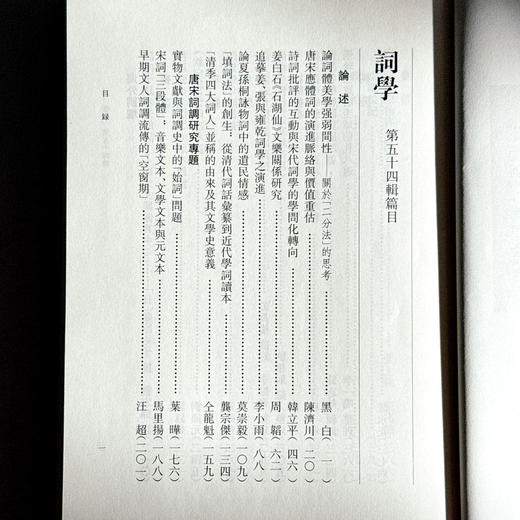 詞學　第五十四輯篇目
論述
論詞體美學强弱間性——關於「二分法」的思考……黑　白（一）
唐宋應體詞的演進脈絡與價值重估……陳濟川（二〇）
詩詞批評的互動與宋代詞學的學問化轉向……韓立平（四六）
姜白石《石湖仙》文樂關係研究……周　韜（六二）
追摹姜、張與雍乾詞學之演進……李小雨（八八）
論夏孫桐詠物詞中的遺民情感……莫崇毅（一〇九）
「填詞法」的創生：從清代詞話彙纂到近代學詞讀本……龔宗傑（一三四）
「清季四大詞人」並稱的由來及其文學史意義……仝龍魁（一五九）
唐宋詞調研究專題
實物文獻與詞調史中的「始詞」問題……葉　曄（一七六）
宋詞「三段體」：音樂文本、文學文本與元文本……馬里揚（一八八）
早期文人詞調流傳的「空窗期」……汪　超（二〇一）
目　録
一